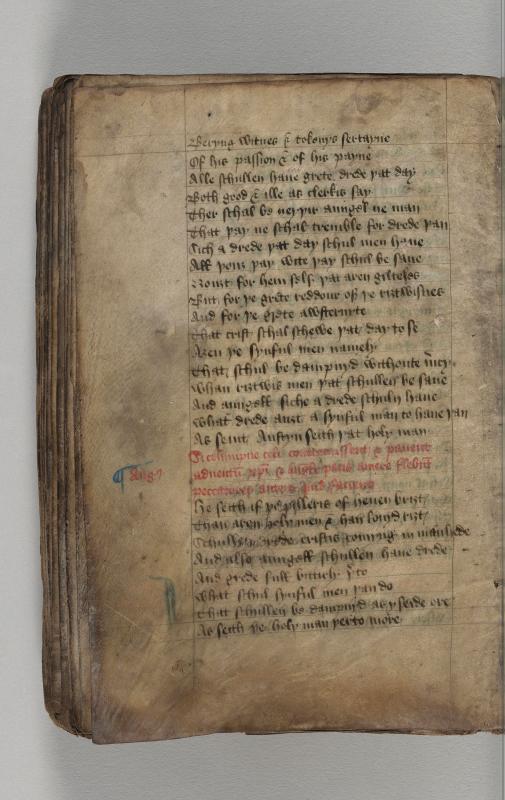 Beryng witnes & tokenys sertayne
Of his passion & of his payne
Alle schullen haue grete drede þat day
Both good & ille as clerkis say
Ther schal be neyþir aungel ne man
That þay ne schal tremble for drede þan
Sich a drede þat day schul men haue
All þouȝ þay wite þay schul be saue
Nouȝt for hem self þat aren gilteles
But for þe grete reddour of þe riȝtwisnes
And for þe grete awsternite
That crist schal schewe þat day to se
Aȝen þe synful men namely
That schul be dampnyd withoute mcy
Whan riȝtwis men þat schullen be saue
And aungell siche a drede schuln haue
What drede auȝt a synful man to haue þan
As seint Austyn seith þat holy man
Si columpne celi
aduentū xpi &
peccatores
¶ Aug9
He seith if þe pilleris of heuen briȝt
Than aren holy men & han louyd riȝt
Schulln drede cristis comyng in manhede
And also aungell schullen haue drede
And grede full bittirly þ to
What schul synful men þan do
That schullen be dampnyd as y seide ore
As seith þe holy man þerto more